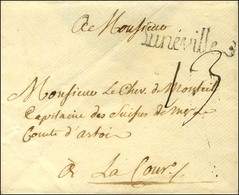 A Monsieur
Lunéville
13
Monsieur Le Chev. de Montfort
Capitaine des Suisses de Mgr
Comte d'artois
à La Cour